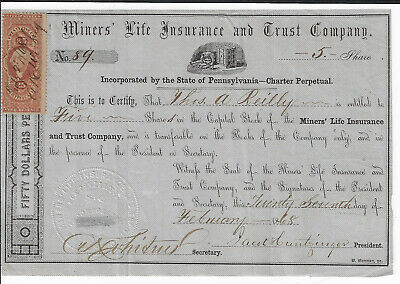 Miners' Life Insurance and Trust Company.
No. 89. 5 Share
Incorporated by the State of Pennsylvania—Charter Perpetual.
This is to Certify, That Thos. A. Reilly is entitled to
Five Shares in the Capital Stock of the Miners' Life Insurance
and Trust Company, and is transferable on the Books of the Company only, and in
the presence of the President or Secretary.
Witness the Seal of the Miners Life Insurance and
Trust Company, and the Signatures of the President
and Secretary, this Twenty Seventh day of
February 1868
President.
Secretary.
FIFTY DOLLARS PE